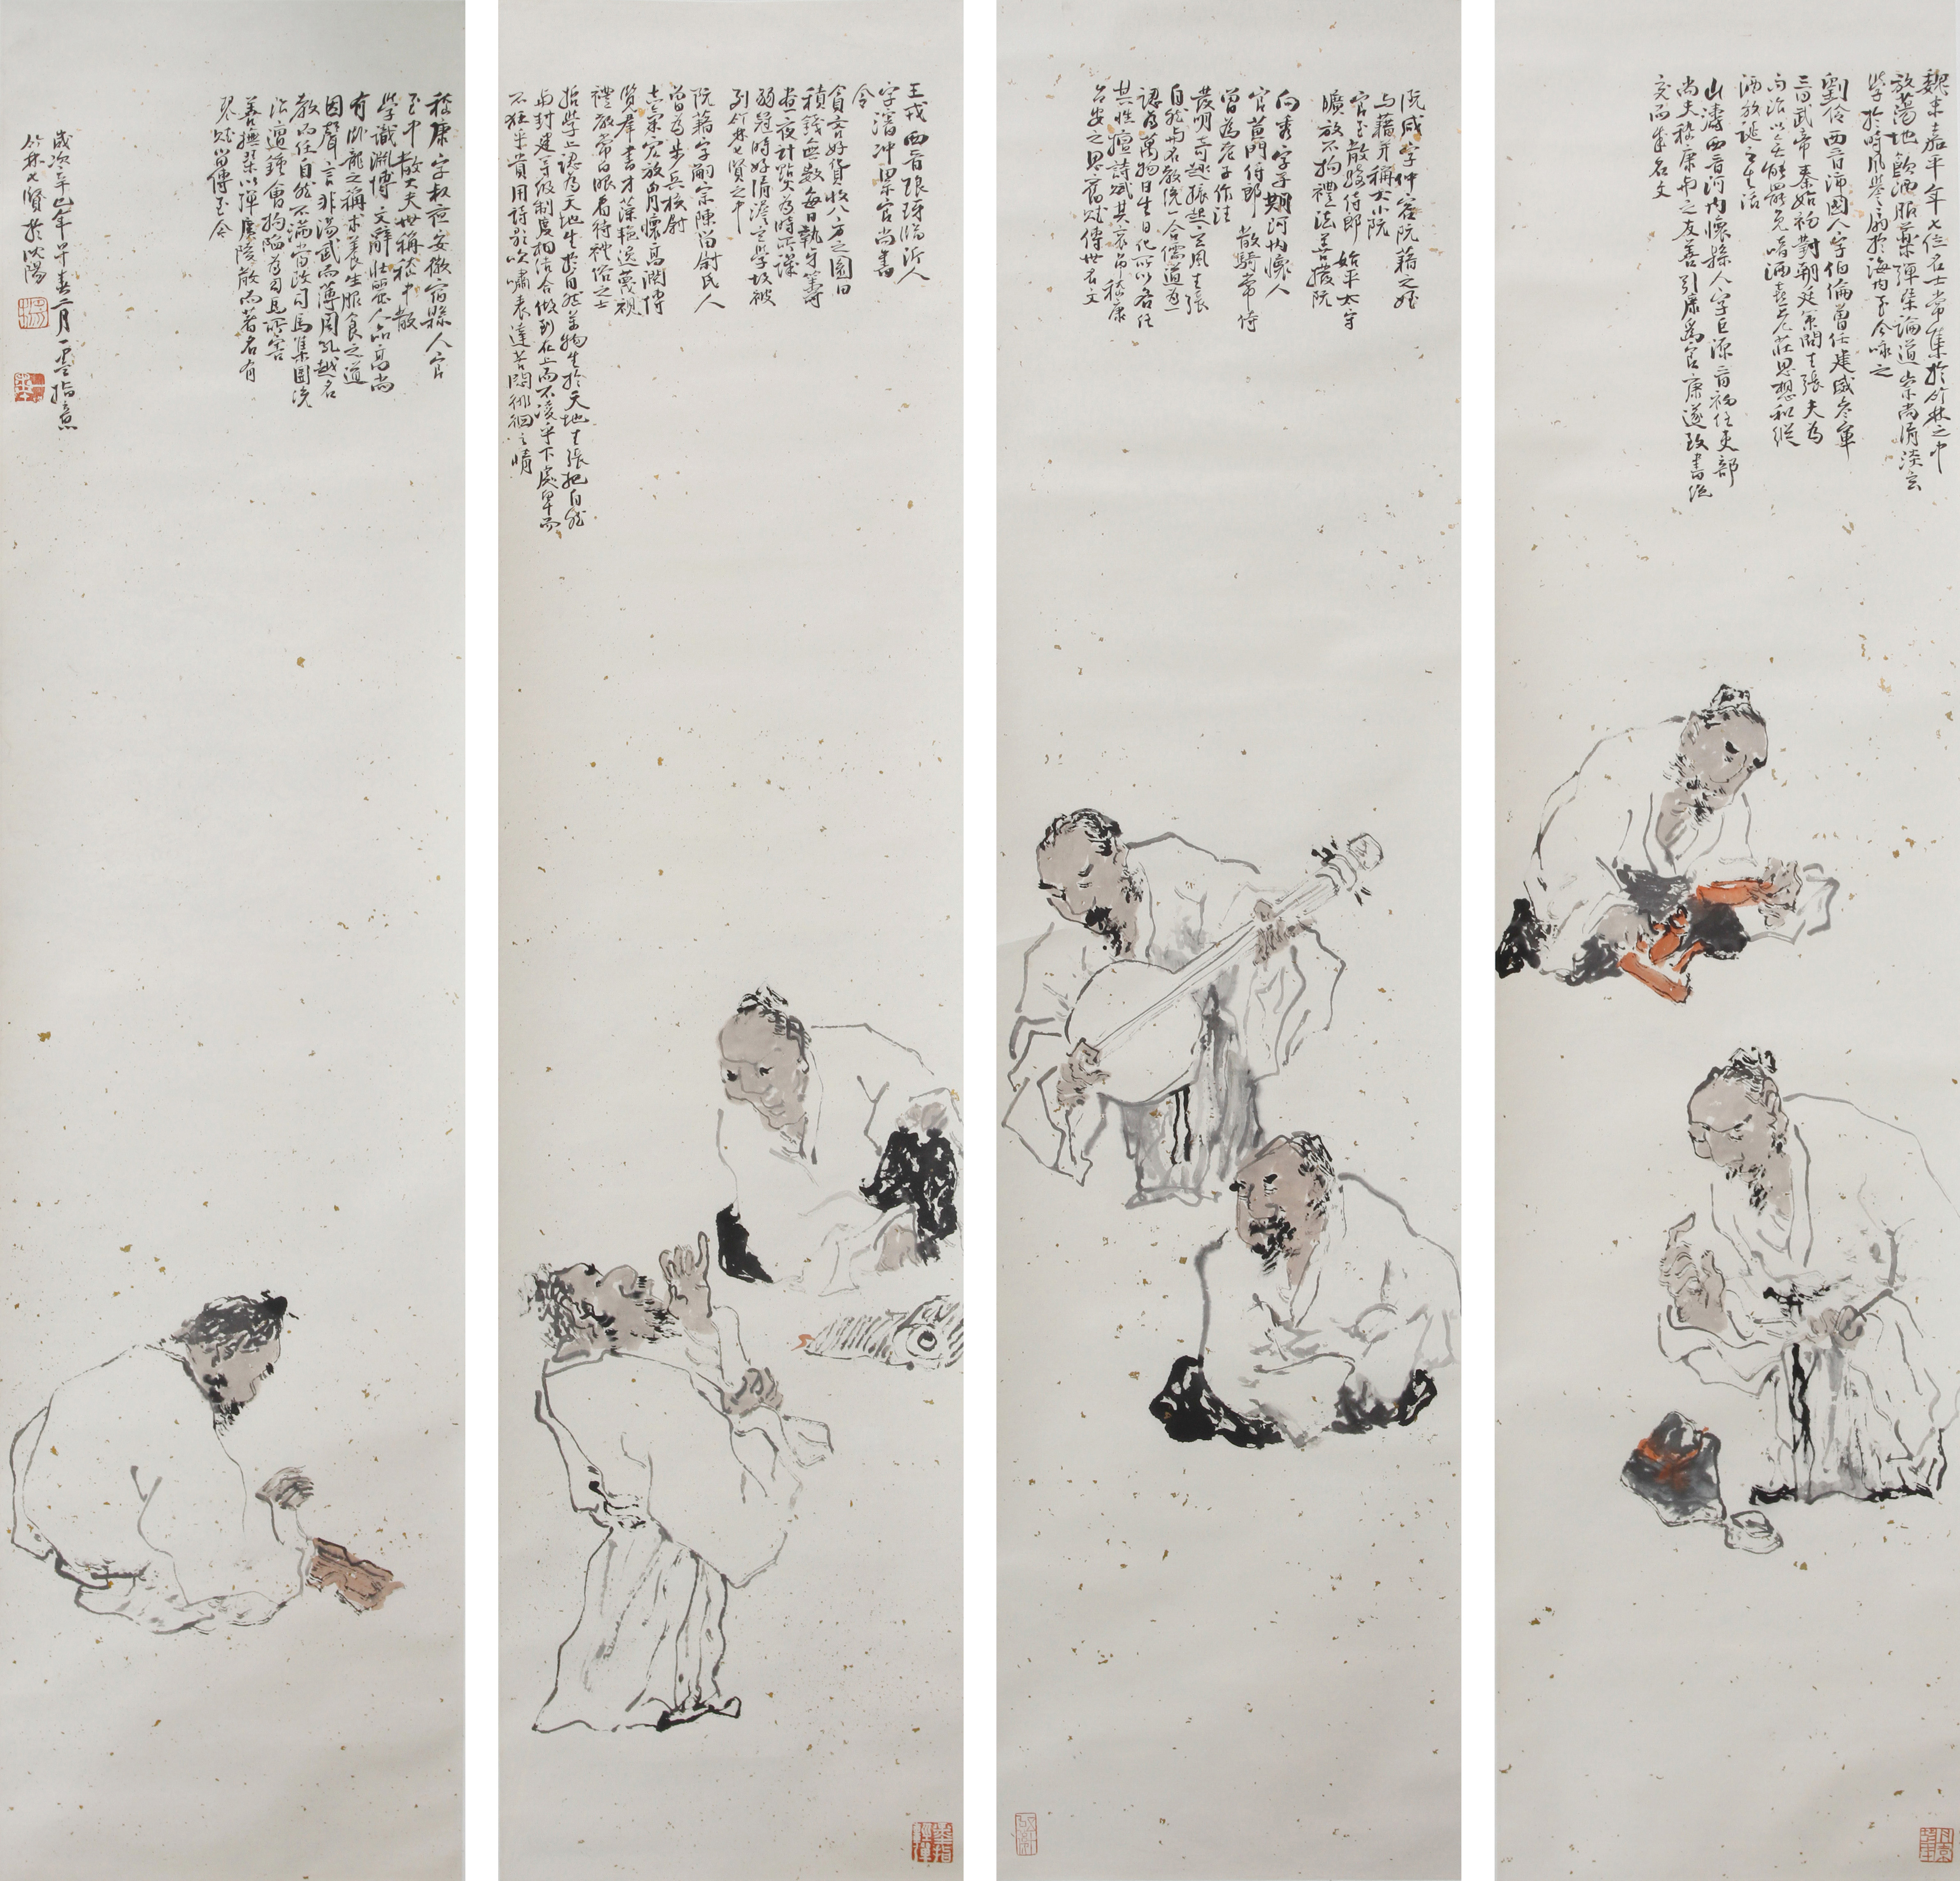 魏末嘉平年七位名士常集於竹林之中
放蕩地飲酒服藥彈琴論道崇尚清淡玄
學於時風譽扇於海內至今咏之
劉伶西晉沛國人字伯倫曾任建威參軍
三曰武帝泰始初對朝廷策問主張夫為
而治以無能罷免嗜酒老莊思想和縱
酒放誕之生活
山濤西晉河內懷縣人字巨源晉初任吏部
尚夫嵇康與之友善引康為官康遂致書絕
交而成名文
阮咸字仲容阮籍之姪
與籍并稱大小阮
官至散騎侍郎始平太守
曠放不拘禮法善撥阮
向秀字子期河內懷人
官黃門侍郎散騎常侍
曾為莊子作注
發明奇趣振起玄風主張
自然與名教統一合儒道為一
認為萬物自生自化所以各任
其性擅詩賦其哀吊嵇康
呂安之思舊賦傳世名文
王戎西晉琅玡臨沂人
字濬冲累官尚書
令
貪吝好貨收八方之園田
積錢無數每日執牙籌
晝夜計算為時所譏
弱冠時好清談玄學故被
列竹林七賢之中
阮籍字嗣宗陳留尉氏人
曾為步兵校尉
志氣宏放胸懷高濶博
覽羣書才藻艷逸蔑視
禮教常白眼看待禮俗之士
哲學上認為天地生於自然萬物生於天地主張把自然
與封建等級制度相結合做到在上而不凌乎下處卑而
不狂乎貴用詩歌吹嘯表達苦悶徘徊之情
嵇康字叔夜安徽宿縣人官
至中散大夫世稱嵇中散
學識淵博文辭壯麗人品高尚
有卧龍之稱求養生服食之道
因聲言非湯武而薄周孔越名
教而任自然不滿當政司馬集團統
治遭鍾會拘陷為司馬所害
善撫琴以彈廣陵散而著名有
琴賦留傳至今
歲次辛巳年早春二月一墨指意
竹林七賢於沈陽